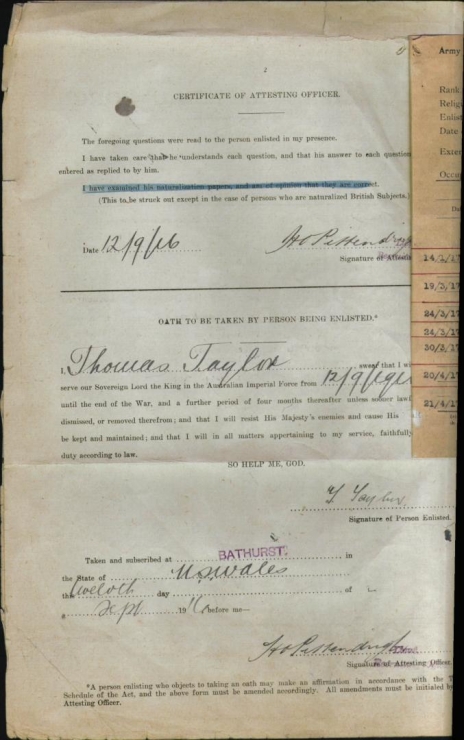 CERTIFICATE OF ATTESTING OFFICER.
The foregoing questions were read to the person enlisted in my presence.
I have taken care that he understands each question, and that his answer to each question
entered as replied to by him.
I have examined his naturalisation papers, and am of opinion that they are correct.
(This to be struck out except in the case of persons who are naturalized British Subjects.)
Date 12/9/16
Signature of Attesting
OATH TO BE TAKEN BY PERSON BEING ENLISTED.*
I, Thomas Taylor swear that I wi
serve our Sovereign Lord the King in the Australian Imperial Force from 12/9/191
until the end of the War, and a further period of four months thereafter unless sooner lawf
dismissed, or removed therefrom; and that I will resist His Majesty's enemies and cause His
be kept and maintained; and that I will in all matters appertaining to my service, faithfully
duty according to law.
SO HELP ME, GOD.
T Taylor
Signature of Person Enlisted.
Taken and subscribed at BATHURST. in
the State of N S Wales
this twelvth day of
Sept 1916 before me—
Signature of Attesting Officer.
*A person enlisting who objects to taking an oath may make an affirmation in accordance with the T
Schedule of the Act, and the above form must be amended accordingly. All amendments must be initialed by
Attesting Officer.
Army
Rank
Relig
Enlist
Date
Exten
Occup
Da
14/1/17
19/3/17
24/3/17
24/3/17
30/3/17
20/4/17
21/4/17